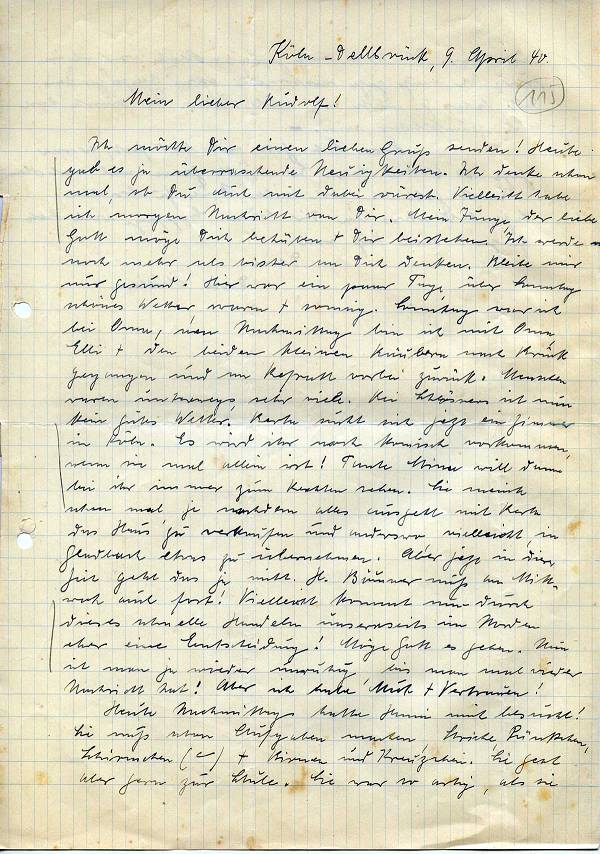 Köln-Dellbrück, 9. April 40.
115
Mein lieber Rudolf!
Ich möchte Dir einen lieben Gruß senden! Heute
gab es ja überraschende Neuigkeiten. Ich denke eben
mal, ob Du auch mit dabei wärest. Vielleicht habe
ich morgen Nachricht von Dir. Mein Junge, der liebe
Gott möge Dich behüten + Dir beistehen. Ich werde
noch mehr als bisher an Dich denken. Bleibe mir
nur gesund! Hier war ein paar Tage über Sonntag
schönes Wetter warm + sonnig. Sonntag war ich
bei Oma, am Nachmittag bin ich mit Oma
Elli + den beiden kleinen Räubern nach Brück
gegangen und am Refrath vorbei zurück. Menschen
waren unterwegs, sehr viele. Bei ist nun
kein gutes Wetter. Kerta sucht sich jetzt ein Zimmer
in Köln. Es wird ihr noch komisch vorkommen,
wenn sie mal allein ist! Tante Mina will dann
bei ihr immer zum Rechten sehen. Sie meint
eben mal, je nachdem alles ausgeht mit Kerta
das Haus zu verkaufen und anderswo vielleicht, in
Gladbach etwas zu übernehmen. Aber jetzt in dieser
Zeit geht das ja nicht. H. Brünner muß am Mitt-
woch auch fort! Vielleicht kommt nun durch
dieses schnelle Handeln unsererseits im Norden
eher eine Entscheidung! Möge Gott es geben. Nun
ist man ja wieder unruhig bis man mal wieder
Nachricht hat! Aber ich habe Mut + Vertrauen!
Heute Nachmittag hatte Hanni mich besucht.
Sie muß schon Aufgaben machen, Striche Pünktchen,
Schirmchen + Birnen und Kreuzchen. Sie geht
aber gern zur Schule. Sie war so artig, als sie